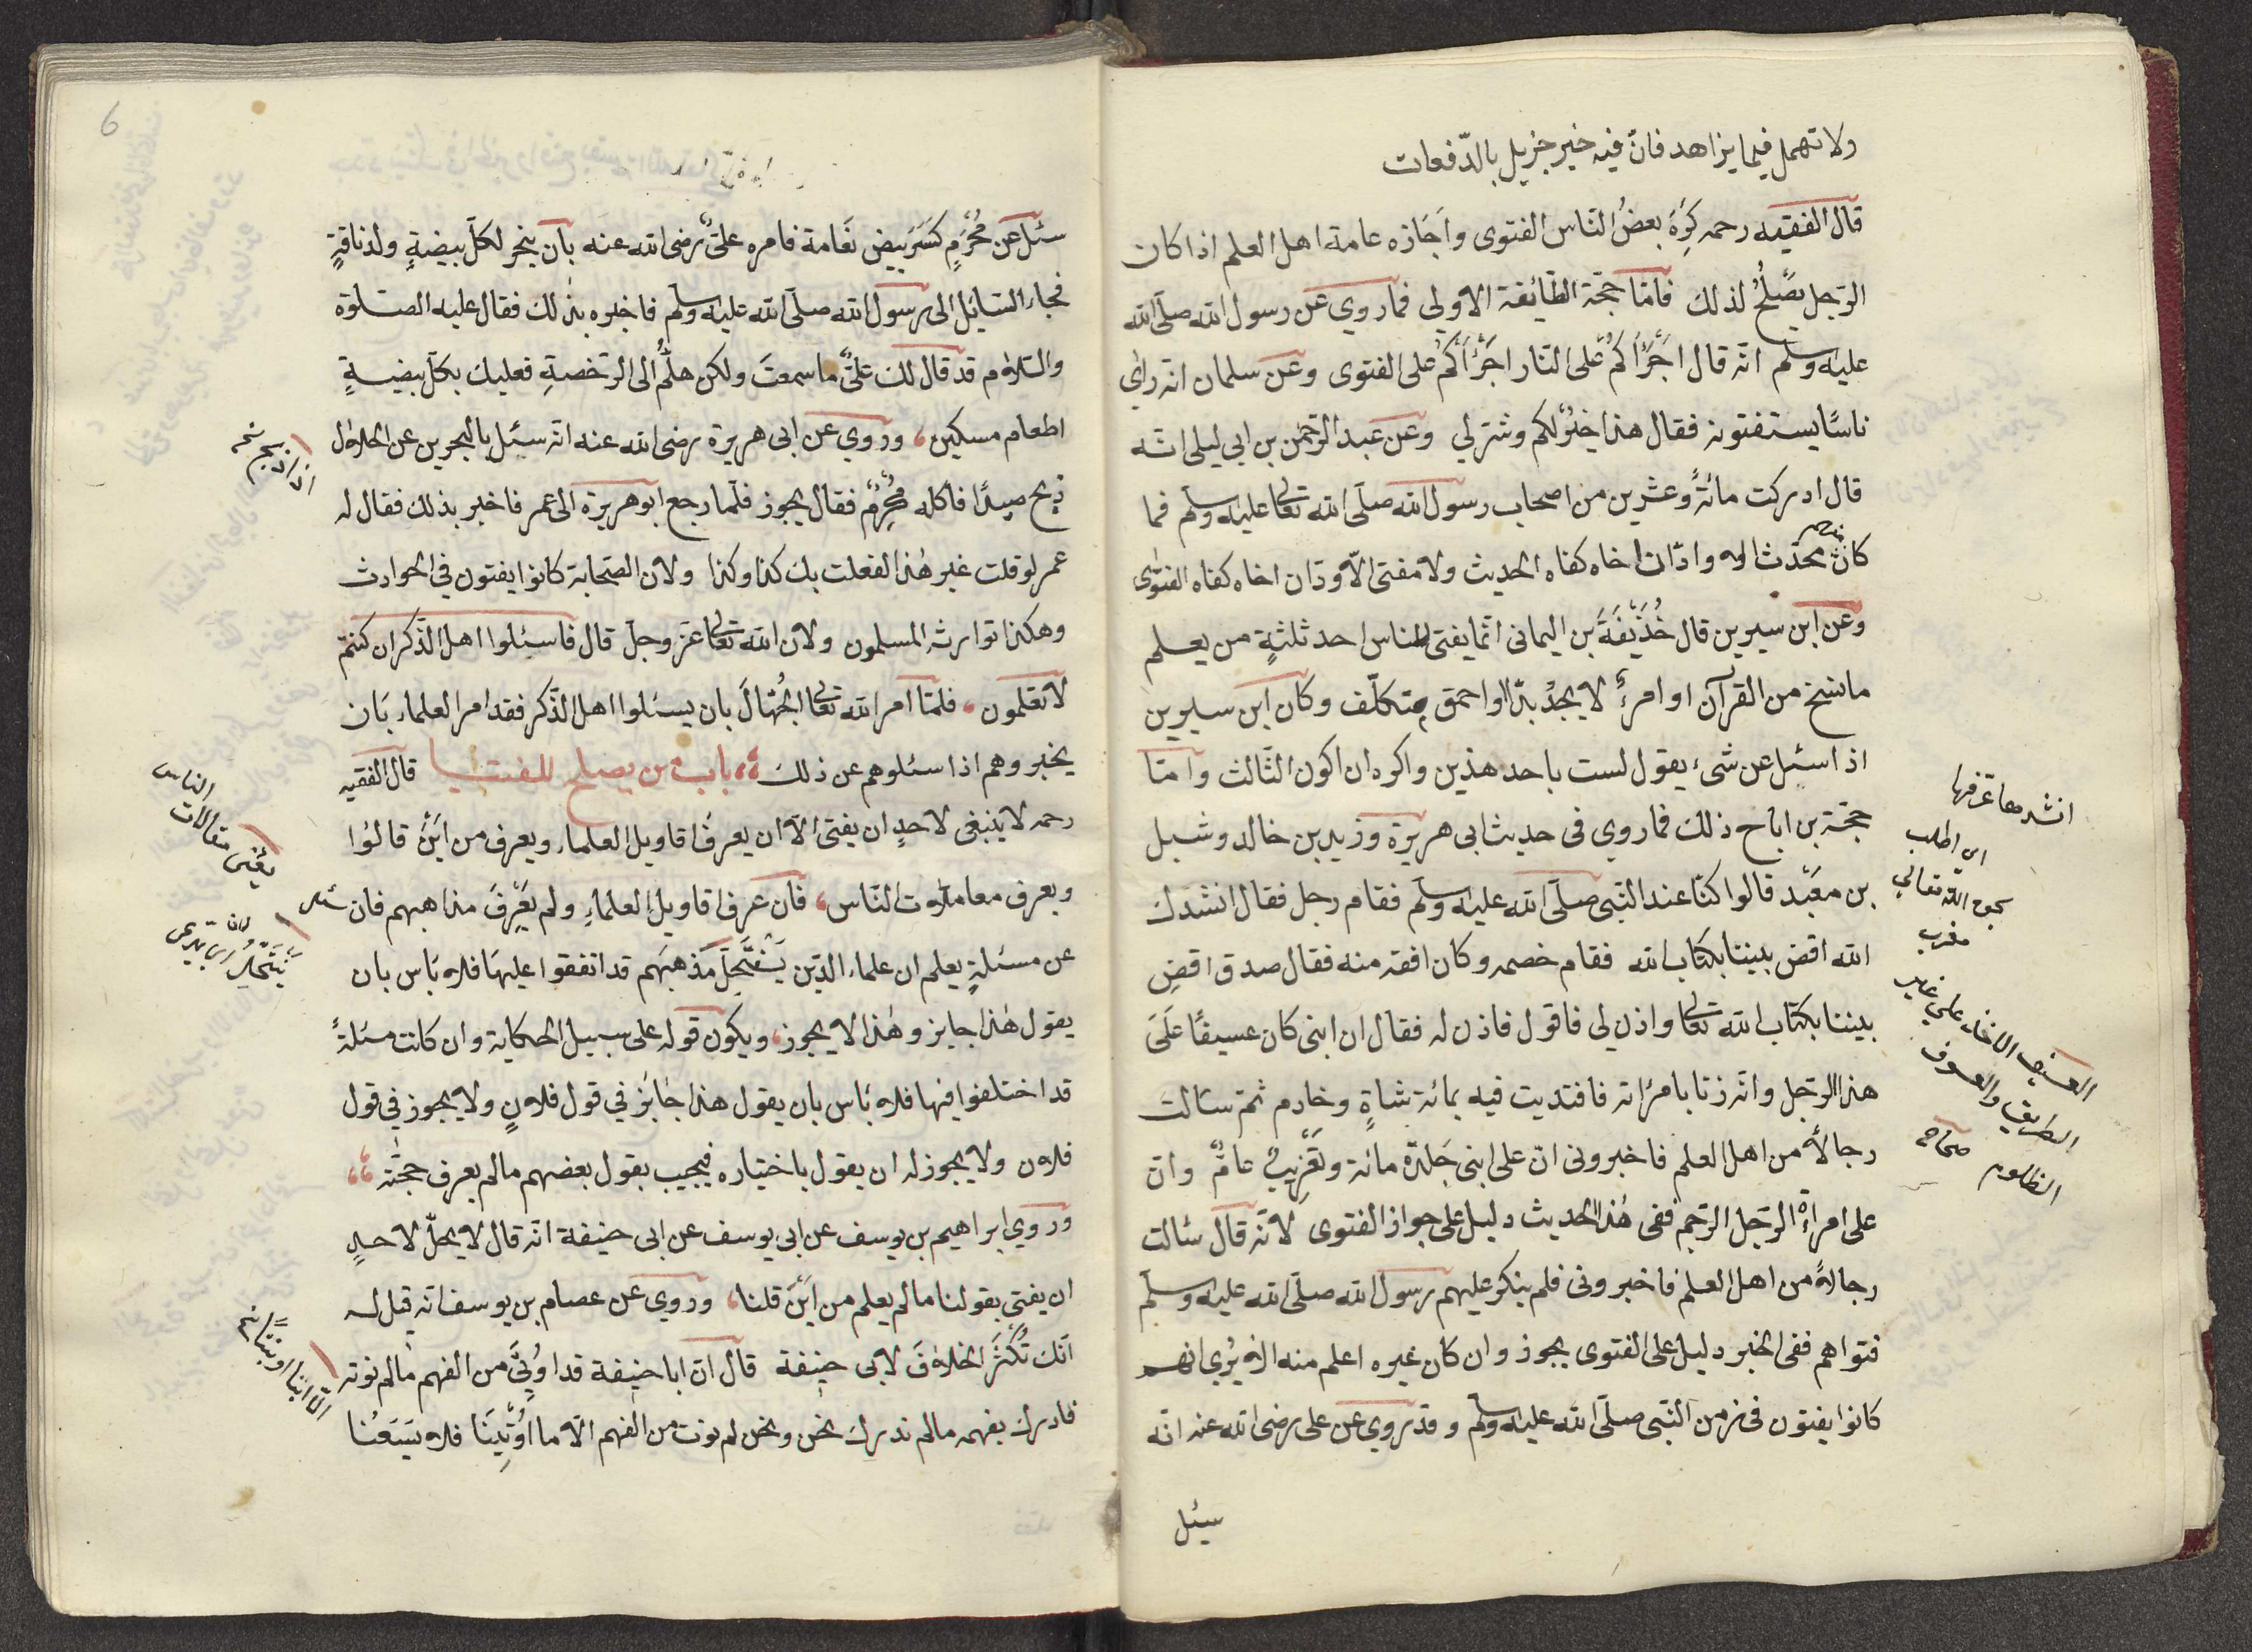 ولا تهمل فيما يزاهد فانّ فيه خير جزيل بالدّفعات
قال الفقيه رحمه كَرِهَ بعضُ النّاس الفتوى واَجَازه عامة اهل العلم اذا كان
الرّجل يصْلُحُ لذلك فامّا حجّة الطّائفة الاولى فما روي عن رسول الله صلّى الله
عليه وسلم انّه قال اجْرَأكُمْ على النّار اجْرَأكُمْ على الفتوى وعن سلمان انه رأى
ناسًا يستفتونه فقال هذا خيْرٌ لكم وشرّ لي وعن عبد الرّحمن بن ابي ليلى انّه
قال ادركت مائةً وعشرين من اصحاب رسول الله صلّى الله تعالى عليه وسلم فما
كان محدّث الا ودّ ان اخاه كفاه الحديث ولا مفتى الّا ودّ ان اخاه كفاه الفتوٰى
وعن ابن سيرين قال حُذَيْفَةَ بن اليمانى انّما يفتى للناس احد ثلثةٍ من يعلم
ما نسخ من القرآن او امرءٌ لا يجدْ بدّا او احمق متكلّف وكان ابن سيرين
اذا سئل عن شىء يقول لست باحد هذين واكره ان اكون الثّالث وامّا
حجّة من اباح ذلك فما روي فى حديث ابى هريرة وزيد بن خالد وشبل
بن معبْد قالوا كنّا عند النّبى صلّى الله عليه وسلم فقام رجل فقال انشدك
الله اقض بيننا بكتاب الله فقام خصمه وكان افقه منه فقال صدق اقضِ
بيننا بكتاب الله تعالى واذن لي فاقول فاذن له فقال ان ابنى كان عسيفًا عَلَى
هذا الرّجل وانّه زنا بامرأته فافتديت فيه بمائة شاةٍ وخادم ثمّ سألت
رجالاً من اهل العلم فاخبرونى انّ على ابنى جَلدة مائة وتغْرِيبُ عامٌ وانّ
على امرأةِ الرّجل الرّجم ففى هٰذا الحديث دليل على جواز الفتوى لانّه قال سألت
رجالاً من اهل العلم فاخبرونى فلم ينكر عليهم رسول الله صلّى الله عليه وسلّم
فتواهم ففى الخبر دليل على الفتوى يجوز وان كان غيره اعلم منه الا يُرى انهم
كانوا يفتون فى زمن النّبى صلّى الله عليه وسلم وقد روي عن على رضى الله عنه انّه
سئل
انشدها عرّفها
اى اطلب
بحق الله تعالى
مغرب
العسيف الاخذ على غير
الطريق والعسوف
الظلوم صحاح
6
سئل عن مُحْرِمٍ كسَرَ بيض نَعَامة فامره علىٌّ رضى الله عنه بان ينحر لكلّ بيضةٍ ولد ناقةٍ
فجاء السّائل الى رسول الله صلّى الله عليه وسلم فاخبره بذٰلك فقال عليه الصّلوة
والسّلام قد قال لك علىٌّ ما سمعتَ ولكن هلمُّ الى الرّخصةِ فعليك بكلّ بيضةٍ
اطعام مسكين، وروي عن ابى هريرة رضى الله عنه انّه سئل بالبحرين عن الحلال
ذبح صيدًا فاكله مُحْرِمٌ فقال يجوز فلمّا رجع ابو هريرة الى عمر فاخبر بذلك فقال له
عمر لو قلت غير هٰذا لفعلت بك كذا وكذا ولانّ الصّحابة كانوا يفتون فى الحوادث
وهكذا توارث المسلمون ولان الله تعالى عزّ وجلّ قال فاسئلوا اهل الذّكر ان كنتمْ
لا تعْلمون، فلمّا امر الله تعالى الجُهّالَ بان يسئلوا اهل الذّكر فقد امر العلماء بَان
يخبروهم اذا سئلوهم عن ذلك باب من يصلح للفتيا قال الفقيه
رحمه لا ينبغى لاحدٍ ان يفتى الّا ان يعرفَ اقاويل العلماء ويعرف من ايْنَ قالوُا
ويعرف معاملات النّاس، فان عرف اقاويل العلماءِ ولم يَعْرِفَ مذاهبهم فان سئل
عن مسئلةٍ يعلم ان علماء الذّين يَنْتَحِلَ مَذهبَهم قد اتفقوا عليهَا فلا بَاس بان
يقول هٰذا جايز وهٰذا لا يجوز، ويكون قوله على سبيل الحكاية وان كانت مسئلةً
قد اختلفوا فيها فلا بَاس بان يقول هذا جَائز في قول فلانٍ ولا يجوز في قول
فلان ولا يجوز له ان يقول باختياره فيجيب بقول بعضهم ما لم يعرف حجّتَه
وروي ابراهيم بن يوسف عن ابى يوسف عن ابى حنيفة انّه قال لا يحلّ لاحدٍ
ان يفتى بقولنا ما لم يعلم من ايْنَ قلنا، وروى عن عصام بن يوسف انّه قيل له
انّك تُكْثرَ الخلافَ لابى حنيفة قال انّ ابا حنيفة قد اوُتِىَ من الفهم ما لم نوته
فادرك بفهمه ما لم ندرك نحن ونحن لم نوت من الفهم الّا ما اوُتِينَا فلا يَسَعُنا
يعْنى مقالات الناس